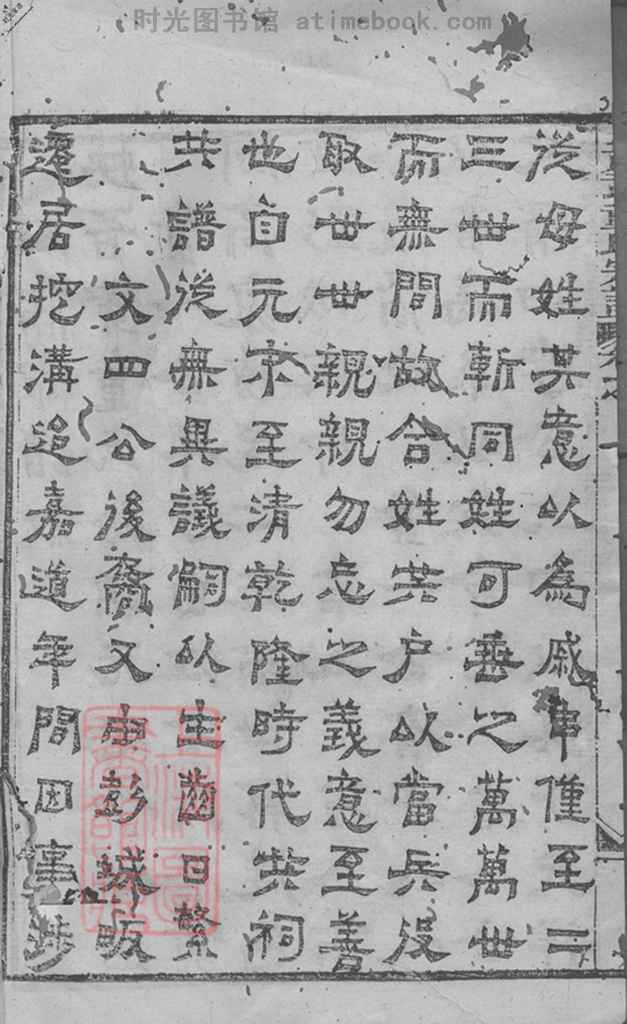 时光图书馆 atimebook.com
從母姓其意以為戚串僅至二
三世而斬同姓可垂之萬萬世
而無間故合姓共户以當兵役
取世世親親勿忘之義意至善
也自元末至清乾隆時代共祠
共譜從無異議嗣以生齒日繁
文四公後裔又由彭城畈
遷居挖溝迨嘉道年間因事涉